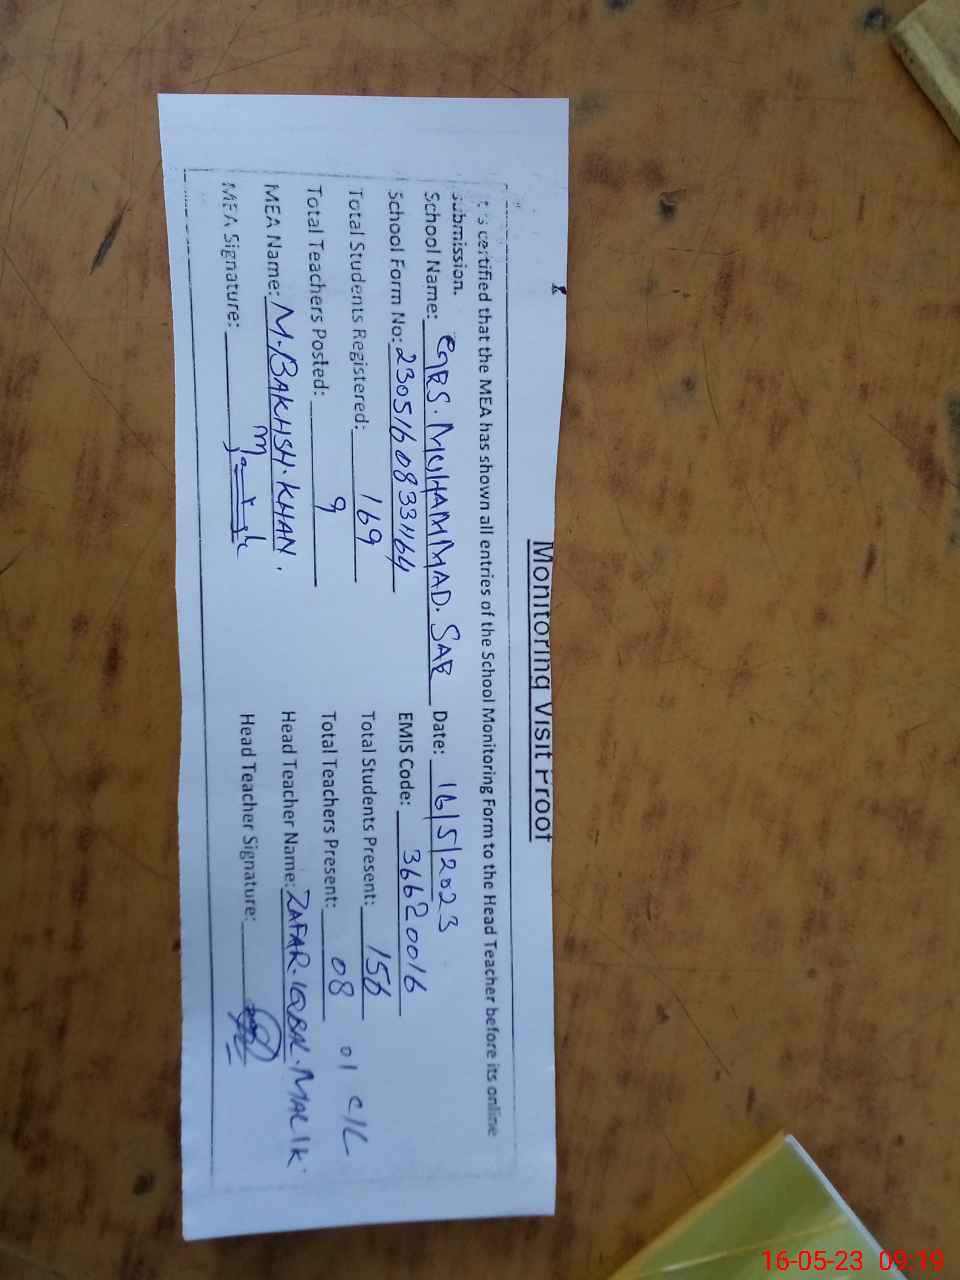 Monitoring Visit Proof
It's certified that the MEA has shown all entries of the School Monitoring Form to the Head Teacher before its online
submission.
School Name: GBS. MUHAMMAD. SAB Date: 16/5/2023
School Form No: 23051608331164 EMIS Code: 36620016
Total Students Registered: 169 Total Students Present: 156
Total Teachers Posted: 9 Total Teachers Present: 08 01 C/L
MEA Name: M. BAKHSH. KHAN. Head Teacher Name: ZAFAR. IQBAL. MALIK
MEA Signature: Head Teacher Signature:
16-05-23 09:19